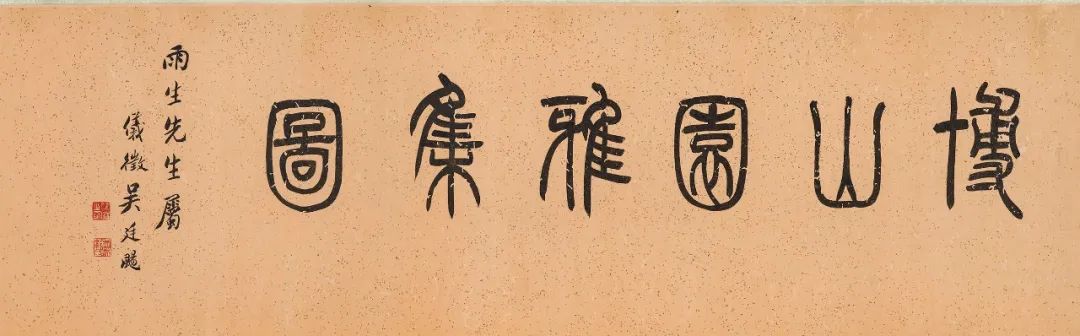 博山園雅集圖
雨生先生屬
儀徵吳廷颺